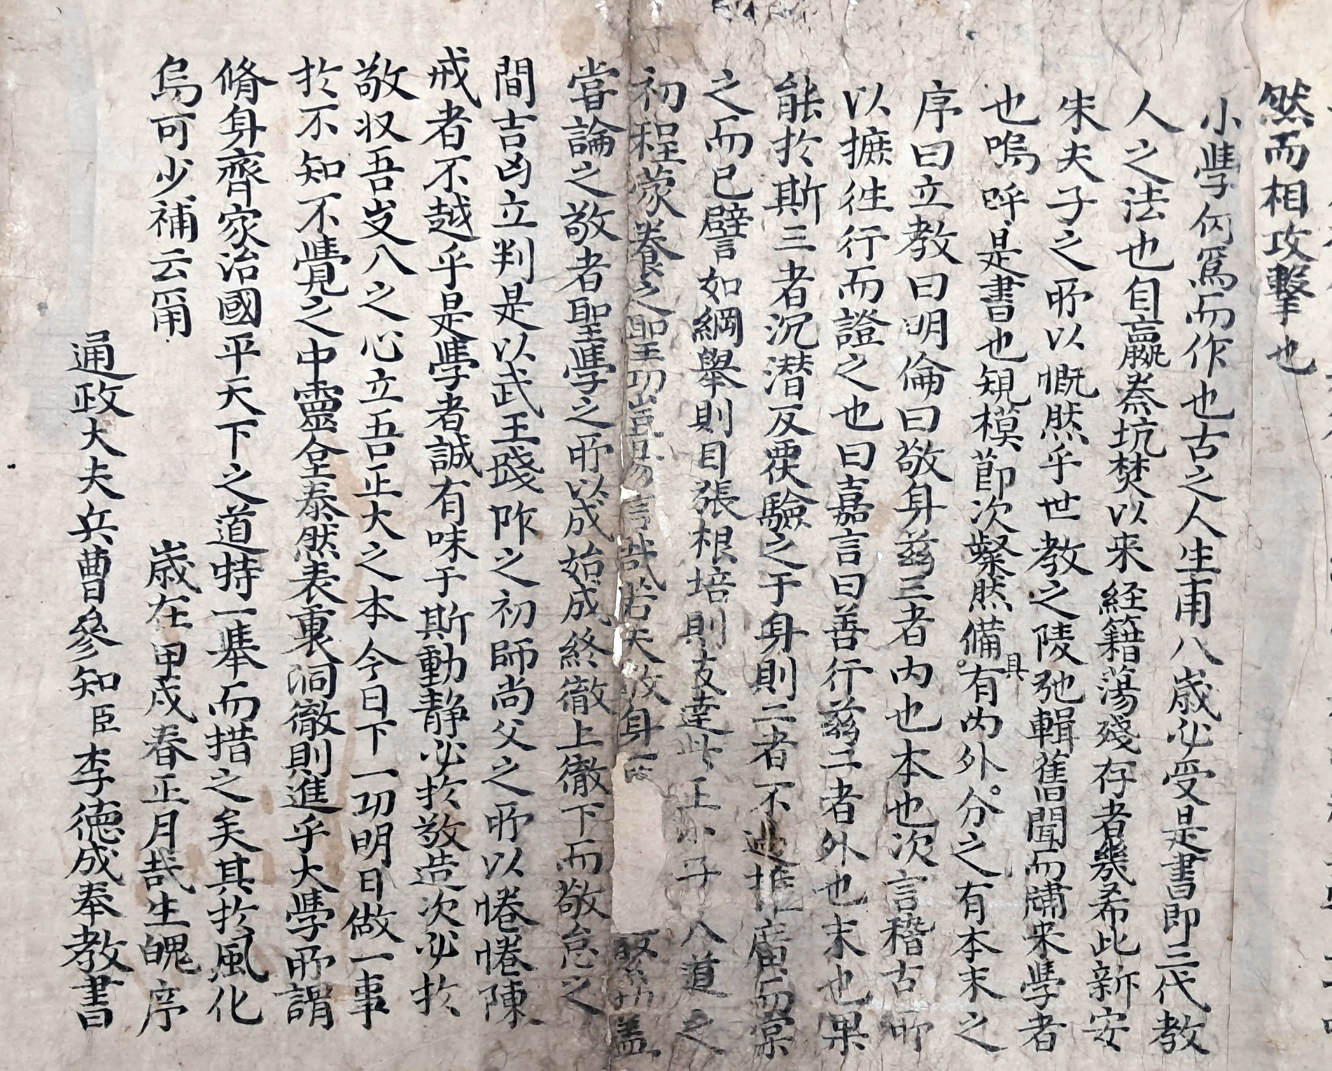 然而相攻擊也
小學何爲而作也古之人生甫八歲必受是書即三代教
人之法也自嬴秦坑焚以来経籍蕩殘存者幾希此新安
朱夫子之所以慨然乎世教之陵弛輯舊聞而牗来學者
也嗚呼是書也規模節次粲然備具有内外分之有本末之
序曰立教曰明倫曰敬身茲三者内也本也次言稽古所
以摭徃行而證之也曰嘉言曰善行茲二者外也末也果
能扵斯三者沉潜反覆驗之于身則二者不過推廣而棠
之而已譬如綱舉則目張根培則支達此王小子入道之
初程蒙養之聖功豈易言哉若夫敬身一 緊切盖
嘗論之敬者聖學之所以成始成終徹上徹下而敬怠之
間吉凶立判是以武王踐阼之初師尚父之所以惓惓陳
戒者不越乎是學者誠有味于斯動静必扵敬造次必扵
敬収吾岐入之心立吾正大之本今日下一功明日做一事
扵不知不覺之中靈臺泰然表裏洞徹則進乎大學所謂
脩身齊家治國平天下之道特一擧而措之矣其扵風化
烏可少補云甭
歲在甲戌春正月哉生魄序
通政大夫兵曹參知臣李德成奉教書